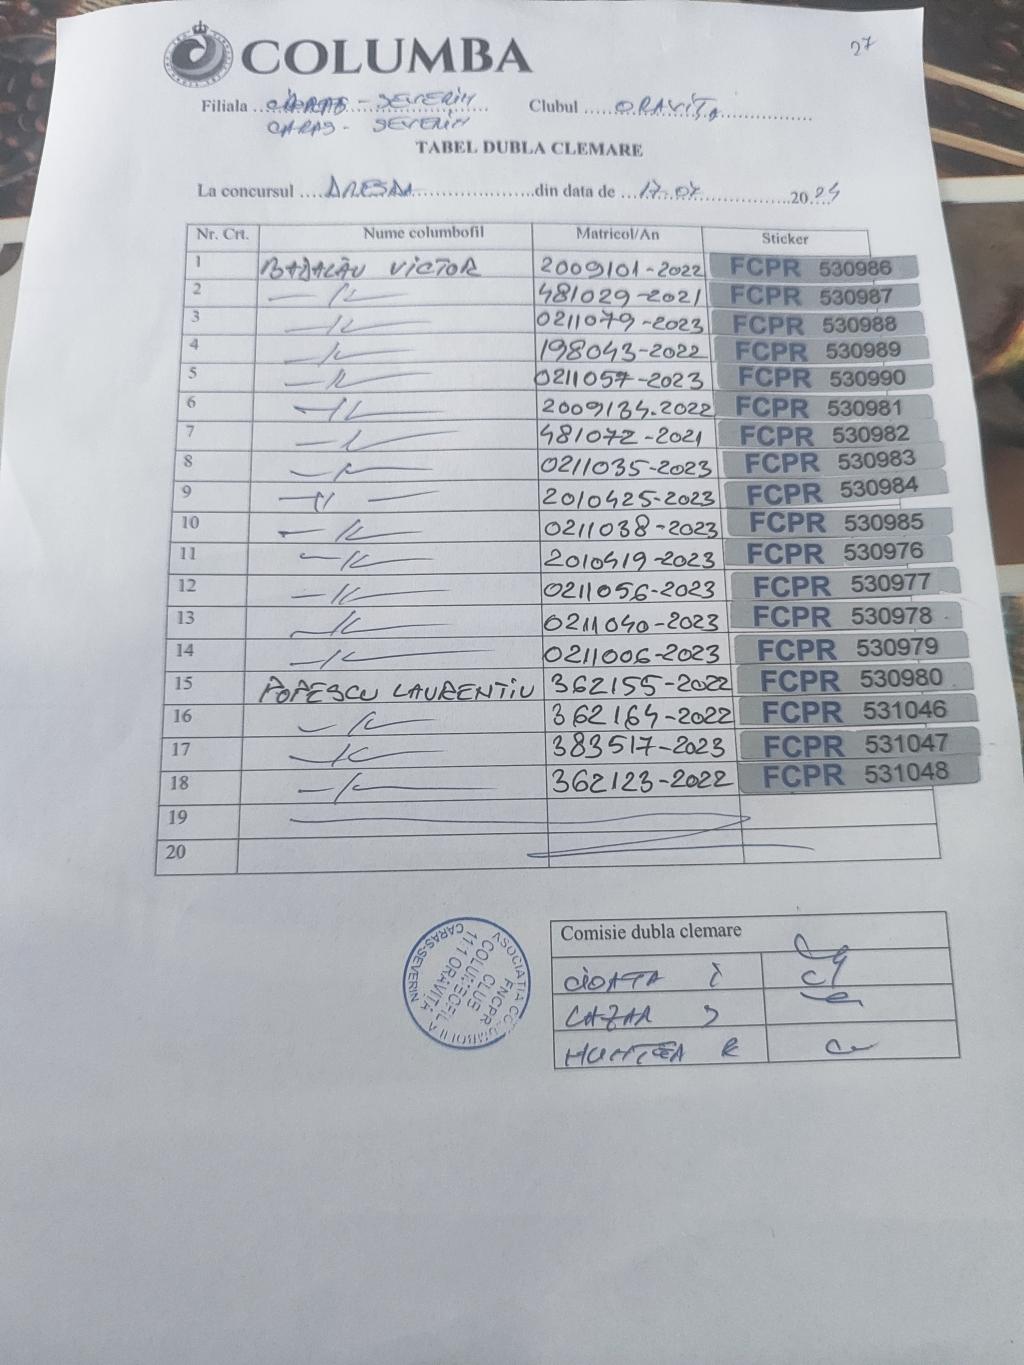 27
COLUMBA
Filiala CARAS - SEVERIN Clubul ORAVIȚA
CARAS - SEVERIN
TABEL DUBLA CLEMARE
La concursul din data de 17.07. 2024
Nr. Crt. Nume columbofil Matricol/An Sticker
1 BADALĂU VICTOR 2009101-2022 FCPR 530986
2 -//- 481029-2021 FCPR 530987
3 -//- 0211079-2023 FCPR 530988
4 -//- 198043-2022 FCPR 530989
5 -//- 0211057-2023 FCPR 530990
6 -//- 2009134.2022 FCPR 530981
7 -//- 481072-2021 FCPR 530982
8 -//- 0211035-2023 FCPR 530983
9 -//- 2010425-2023 FCPR 530984
10 -//- 0211038-2023 FCPR 530985
11 -//- 2010419-2023 FCPR 530976
12 -//- 0211056-2023 FCPR 530977
13 -//- 0211040-2023 FCPR 530978
14 -//- 0211006-2023 FCPR 530979
15 POPESCU LAURENTIU 362155-2022 FCPR 530980
16 -//- 362164-2022 FCPR 531046
17 -//- 383517-2023 FCPR 531047
18 -//- 362123-2022 FCPR 531048
19
20
Comisie dubla clemare
CIOATA I
CAZAR S
HUNTEA R
ASOCIATIA COLUMBOFILA
FNCPR
CLUB
COLUMBOFIL
11.1 ORAVIȚA
CARAS-SEVERIN